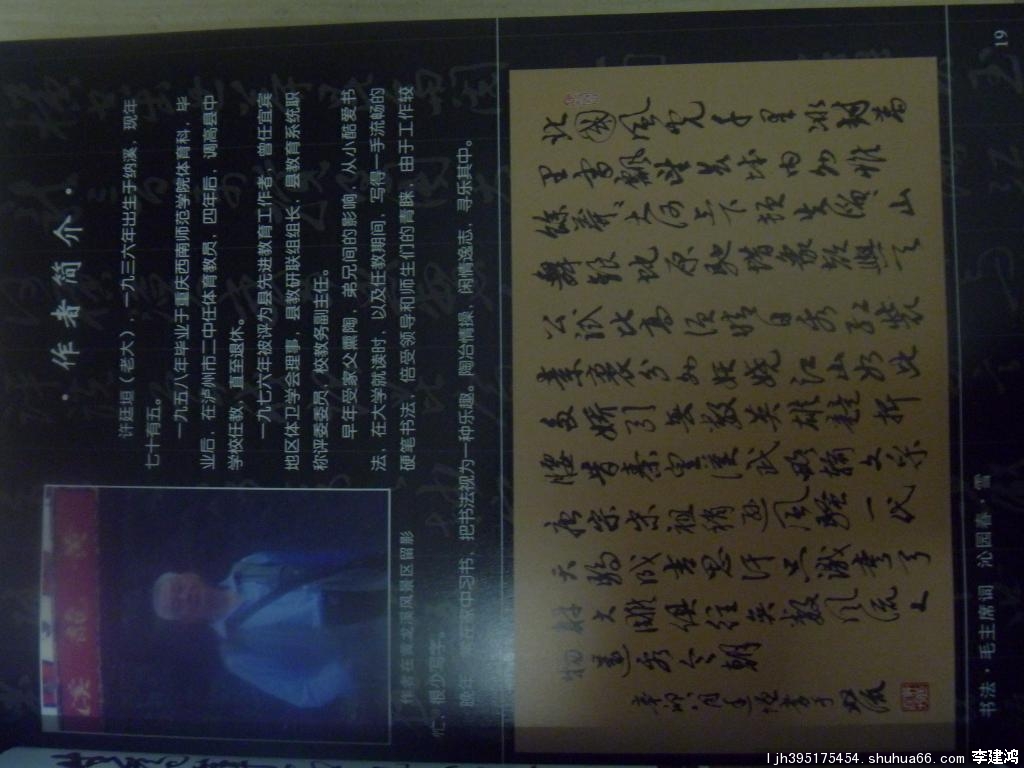 · 作者简介 ·
许廷垣（老大），一九三六年出生于纳溪，现年
七十有五。
一九五八年毕业于重庆西南师范学院体育科，毕
业后，在泸州市二中任体育教员，四年后，调高县中
学校任教，直至退休。
一九七六年被评为县先进教育工作者，曾任宜宾
地区体卫学会理事，县教研联组组长，县教育系统职
称评委委员，校教务副主任。
早年受家父熏陶，弟兄间的影响，从小酷爱书
法，在大学就读时，以及任教期间，写得一手流畅的
硬笔书法，倍受领导和师生们的青睐，由于工作较
忙，很少写字。
晚年，常在家中习书，把书法视为一种乐趣。陶冶情操，闲情逸志，寻乐其中。
作者在黄龙溪风景区留影
北國風光千里冰封萬
里雪飄望長城内外惟
餘莽莽大河上下頓失滔滔山
舞銀蛇原馳蜡象欲與天
公試比高須晴日看紅裝
素裹分外妖嬈江山如此
多嬌引無數英雄競折
腰惜秦皇漢武略輸文采
唐宗宋祖稍遜風騷一代
天驕成吉思汗只識彎弓
射大雕俱往矣數風流人
物還看今朝
辛卯八月廷垣書于
书法·毛主席词 沁园春·雪
19
ljh395175454.shuhua66.com 李建鸿